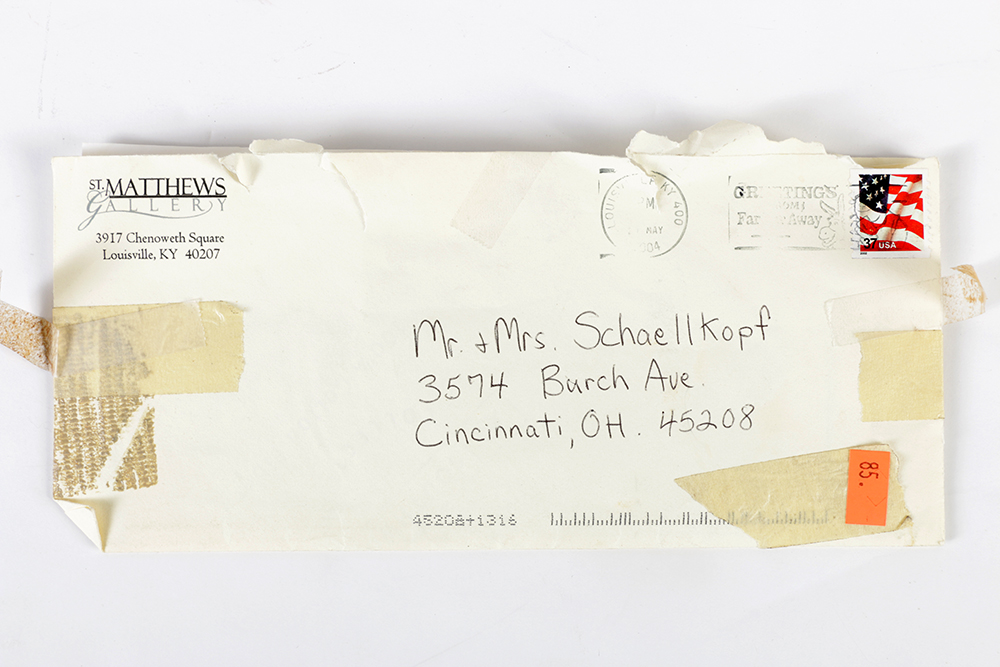 ST. MATTHEWS
GALLERY
3917 Chenoweth Square
Louisville, KY 40207
KY 400
PM
MAY
GREETINGS
Away
37 USA
Mr. + Mrs. Schaellkopf
3574 Burch Ave.
Cincinnati, OH. 45208
85.
45208+1316